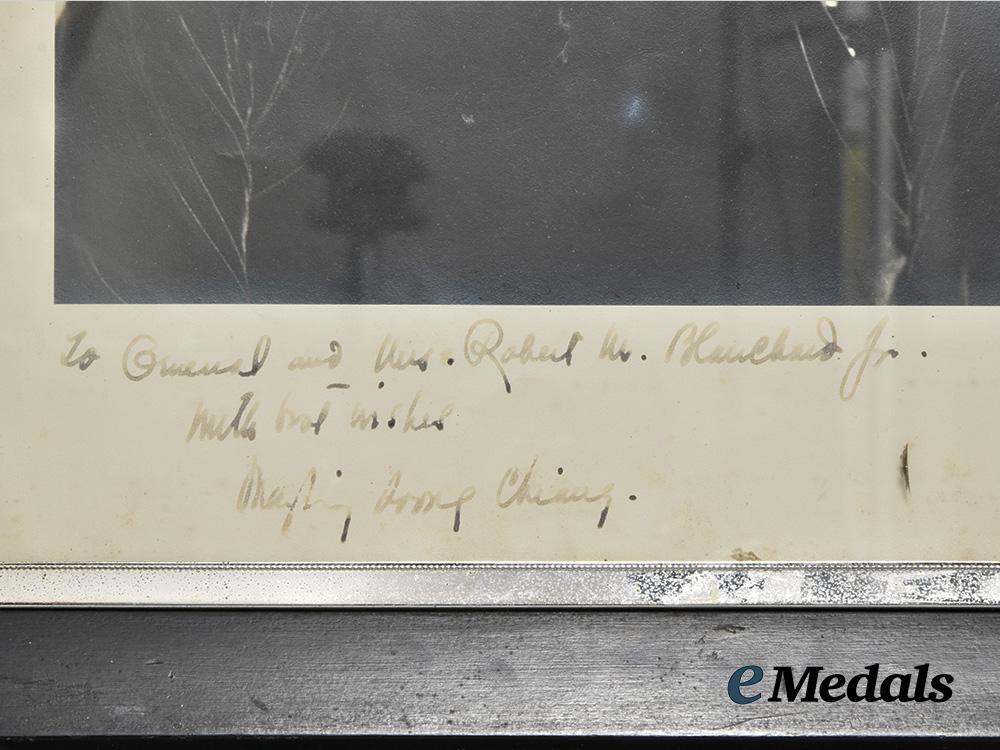 To General and Mrs. Robert M. Blanchard Jr.
With best wishes
Mayling Soong Chiang.
eMedals